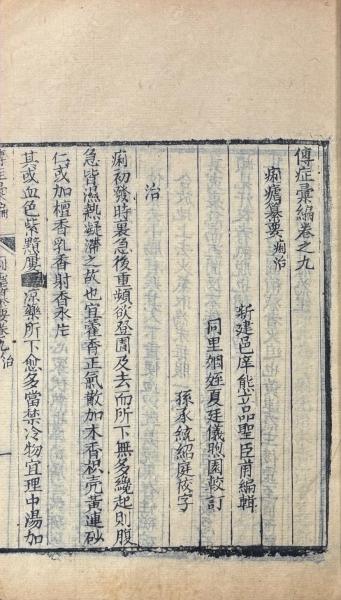 傳症彙編卷之九
痢瘧纂要 痢治
新建邑庠熊立品聖臣甫編輯
同里姻姪夏廷儀煦園較訂
孫承統紹庭校字
治
痢初發時裏急後重頻欲登圊及去而所下無多纔起則腹
急皆濕熱凝滯之故也宜藿香正氣散加木香枳壳黃連砂
仁或加檀香乳香射香永片
其或血色紫黯屢 凉藥所下愈多當禁冷物宜理中湯加